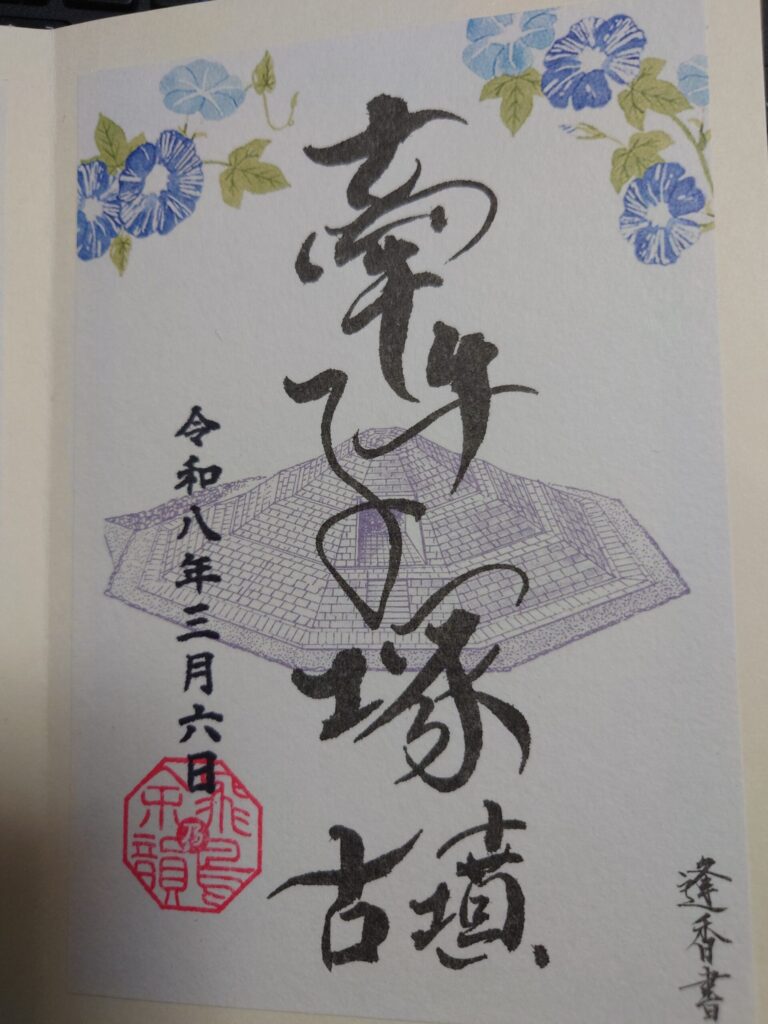 牽牛子塚
古墳
令和八年三月六日
飛鳥
乃
余韻
逢香書